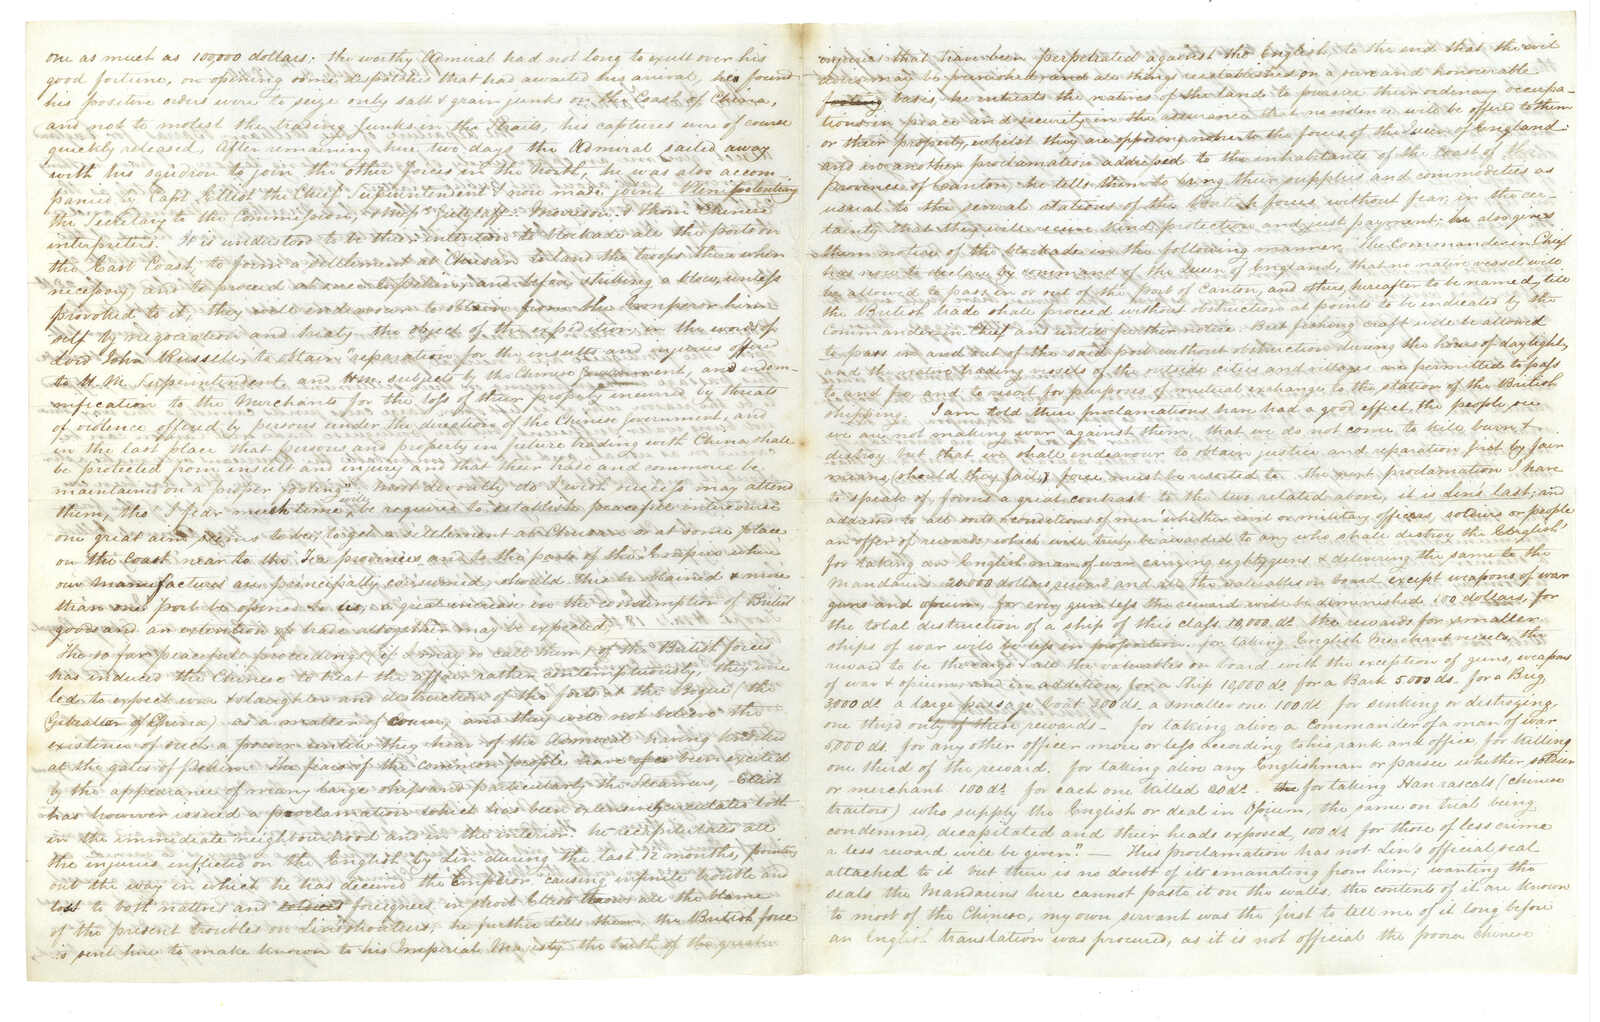 one as much as 100000 dollars; the worthy Admiral had not long to exult over his
good fortune, on opening some dispatches that had awaited his arrival, he found
his positive orders were to seize only salt & grain junks on the Coast of China,
and not to molest the trading Junks in the Straits, his captures were of course
quickly released, After remaining here two days the Admiral sailed away
with his squadron to join the other forces in the North, he was also accom-
panied by Capt Elliot the Chief Superintendent & now made joint Plenipotentiary
the Secretary to the Commission, & Messrs Gutzlaff, Morrison & Thom Chinese
interpreters. It is understood to be their intention to blockade all the ports on
the East Coast, to form a settlement at Chusan to land the troops there when
necessary, and to proceed at once to Pekin, and before striking a blow, unless
provoked to it, they will endeavour to obtain from the Emperor him
self by negociation and treaty the object of the expedition, in the words of
Lord John Russell, to obtain "reparation for the insults and injuries offered
to H. M. Superintendent, and H M. subjects by the Chinese Government, and indem-
nification to the Merchants for the loss of their property incurred by threats
of violence offered by persons under the direction of the Chinese Government, and
in the last place that persons and property in future trading with China shall
be protected from insult and injury and that their trade and commerce be
maintained on a proper footing" most devoutly do I wish success may attend
them, tho' I fear much time will be required to establish peaceful intercourse
one great aim seems to be, to get a settlement at Chusan or at some place
on the Coast near to the Tea provinces and to the parts of the Empire where
our manufactures are principally consumed, should this be obtained & more
than one port be opened to us, a great increase in the consumption of British
goods and an extention of trade altogether may be expected,
The so far peaceful proceedings (if I may so call them) of the British forces
has induced the Chinese to treat the affair rather contemptuously, they were
led to expect war & slaughter and destruction of the forts at the Bogue (the
Gibralter of China) as a matter of course, and they will not believe the
existence of such a power until they hear of the Admiral having knocked
at the gates of Pekin. The fears of the common people have been excited
by the appearance of many large ships and particularly the steamers, Elliot
has however issued a proclamation which has been extensively circulated both
in the immediate neighbourhood and in the interior. he recapitulates all
the injuries inflicted on the English by Lin during the last 12 months, pointing
out the way in which he has deceived the Emperor causing infinite trouble and
loss to both natives and foreigners, in short Elliot throws all the blame
of the present troubles on Lin's shoulders, he further tells them, the British force
is sent here to make known to his Imperial Majesty the truth of the greater
injuries that have been perpetrated against the English, to the end that the evil
doers may be punished and all things reestablished on a sure and honourable
footing basis, he intreats the natives of the land to pursue their ordinary occupa-
tions in peace and security in the assurance that no violence will be offered to them
or their property, whilst they are opposing none to the forces of the Queen of England:
and in another proclamation addressed to the inhabitants of the coast of the
Province of Canton he tells them to bring their supplies and commodities as
usual to the several stations of the British forces, without fear, in the cer-
tainty that they will receive kind protection and just payment; he also gives
them notice of the blockade in the following manner. The Commander in Chief
has now to declare by command of the Queen of England, that no native vessel will
be allowed to pass in or out of the port of Canton, and others, hereafter to be named, till
the British trade shall proceed without obstruction at points to be indicated by the
Commander in Chief and until further notice. But fishing craft will be allowed
to pass in and out of the said port without obstruction during the hours of daylight,
and the native trading vessels of the outside cities and villages are permitted to pass
to and fro, and to resort for purposes of mutual exchange to the station of the British
shipping. I am told these proclamations have had a good effect, the people see
we are not making war against them, that we do not come to kill burn &
destroy but that we shall endeavour to obtain justice and reparation first by fair
means, (should they fail) force must be resorted to. the next proclamation I have
to speak of, forms a great contrast to the two related above, it is Lin's last, and
address'd to all ranks & conditions of men "whether civil or military officers, soldiers or people
an offer of rewards which will truly be awarded to any who shall destroy the English"
for taking an English man of war carrying eighty guns & delivering the same to the
Mandarins 20.000 dollars reward and all the valuables on board except weapons of war
guns and opium, for every gun less the reward will be diminished 100 dollars, for
the total destruction of a ship of this class 10,000 ds. the rewards for smaller
ships of war will be less in proportion. for taking English Merchant vessels, the
reward to be the cargo & all the valuables on board with the exception of guns, weapons
of war & opium, and in addition, for a Ship 10,000 ds for a Bark 5.000 ds. for a Brig
3000 ds a large passage boat 300 ds. a smaller one 100 ds. for sinking or destroying
one third only of these rewards – for taking alive a commander of a man of war
5,000 ds. for any other officer more or less according to his rank and office, for killing
one third of the reward. for taking alive any Englishman or parsee whether soldier
or merchant 100 ds. for each one killed 20 ds. for taking Han rascals (Chinese
traitors) who supply the English or deal in Opium, the same on trial being
condemned, decapitated and their heads exposed, 100 ds for those of less crime
a less reward will be given". — This proclamation has not Lin's official seal
attached to it but there is no doubt of its emanating from him; wanting the
seals the Mandarins here cannot paste it on the walls, the contents of it are known
to most of the Chinese, my own servant was the first to tell me of it long before
an English translation was procured, as it is not official the poor Chinese